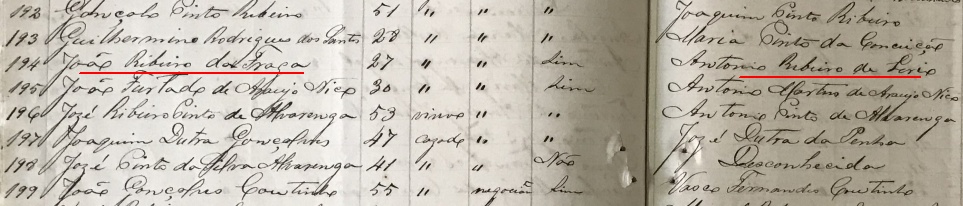 192 Gonçalo Pinto Ribeiro 51 " " " Joaquim Pinto Ribeiro
193 Guilhermino Rodrigues dos Santos 28 " " " Maria Pinto da Conceição
194 João Ribeiro da Fraga 27 " " Sim Antonio Ribeiro de
195 João Furtado de Araujo Nico 30 " " Sim Antonio Martins de Araujo Nico
196 José Ribeiro Pinto de Alvarenga 53 viuvo " " Antonio Pinto de Alvarenga
197 Joaquim Dutra Gonçalves 47 casado " " José Dutra da Penha
198 José Pinto da Silva Alvarenga 41 " " Não Desconhecida
199 João Gonçalves Coutinho 55 " Sim Vasco Fernandes Coutinho